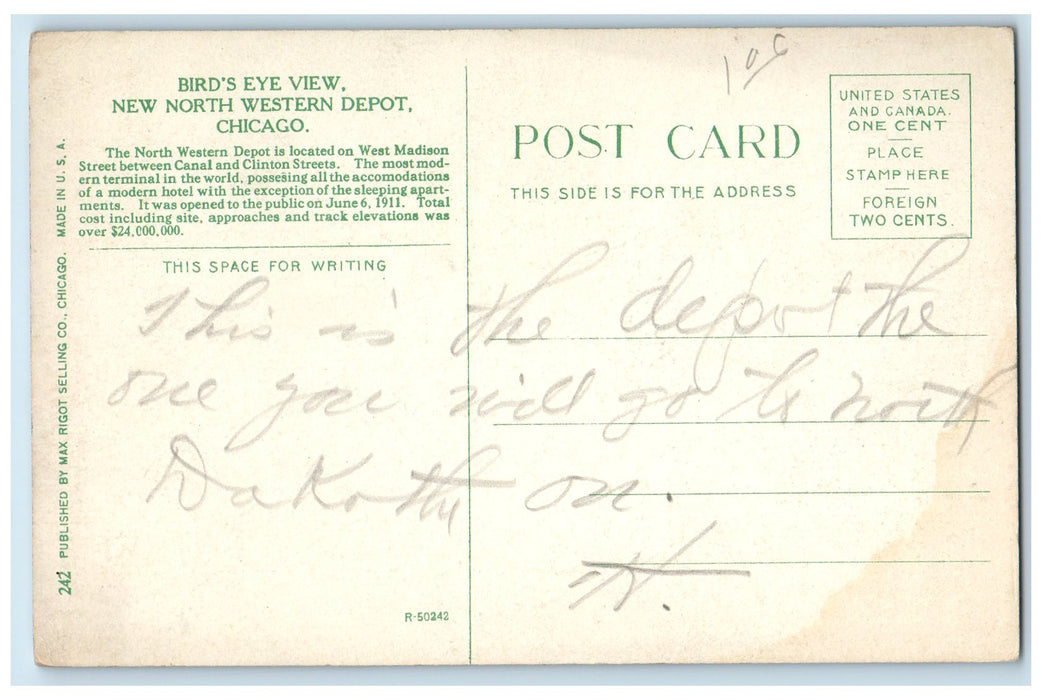 BIRD'S EYE VIEW,
NEW NORTH WESTERN DEPOT,
CHICAGO.
The North Western Depot is located on West Madison
Street between Canal and Clinton Streets. The most mod-
ern terminal in the world, possesing all the accomodations
of a modern hotel with the exception of the sleeping apart-
ments. It was opened to the public on June 6, 1911. Total
cost including site, approaches and track elevations was
over $24,000,000.
THIS SPACE FOR WRITING
242 PUBLISHED BY MAX RIGOT SELLING CO., CHICAGO. MADE IN U. S. A.
R-50242
POST CARD
THIS SIDE IS FOR THE ADDRESS
UNITED STATES
AND CANADA.
ONE CENT
PLACE
STAMP HERE
FOREIGN
TWO CENTS.
This is the depot the
one you will go to north
Dakotha on.
H.